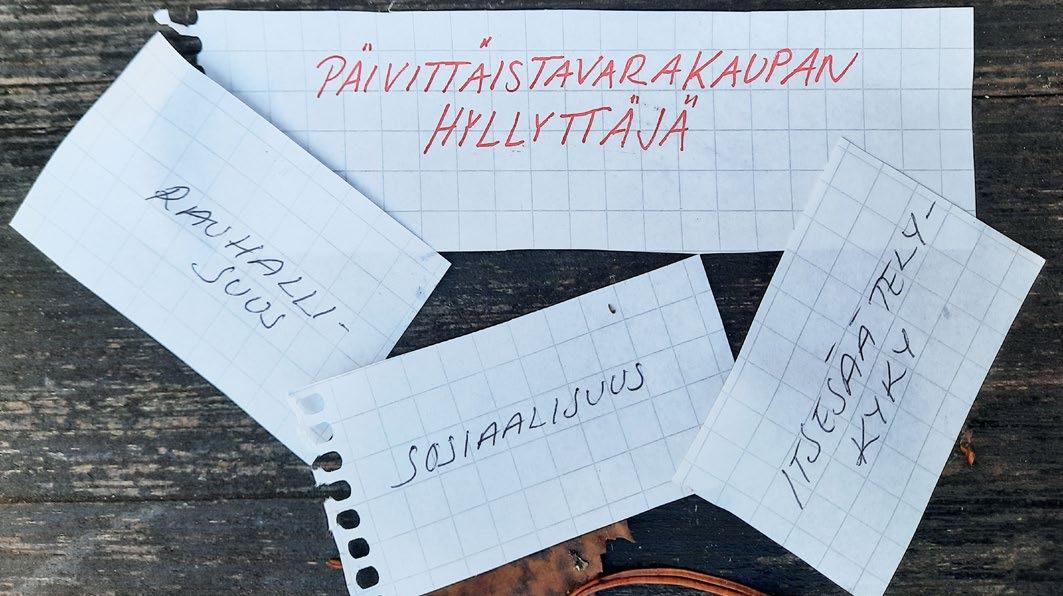 PÄIVITTÄISTAVARAKAUPAN
HYLLYTTÄJÄ
RAUHALLI-
SUUS
SOSIAALISUUS
ITSESÄÄTELY-
KYKY